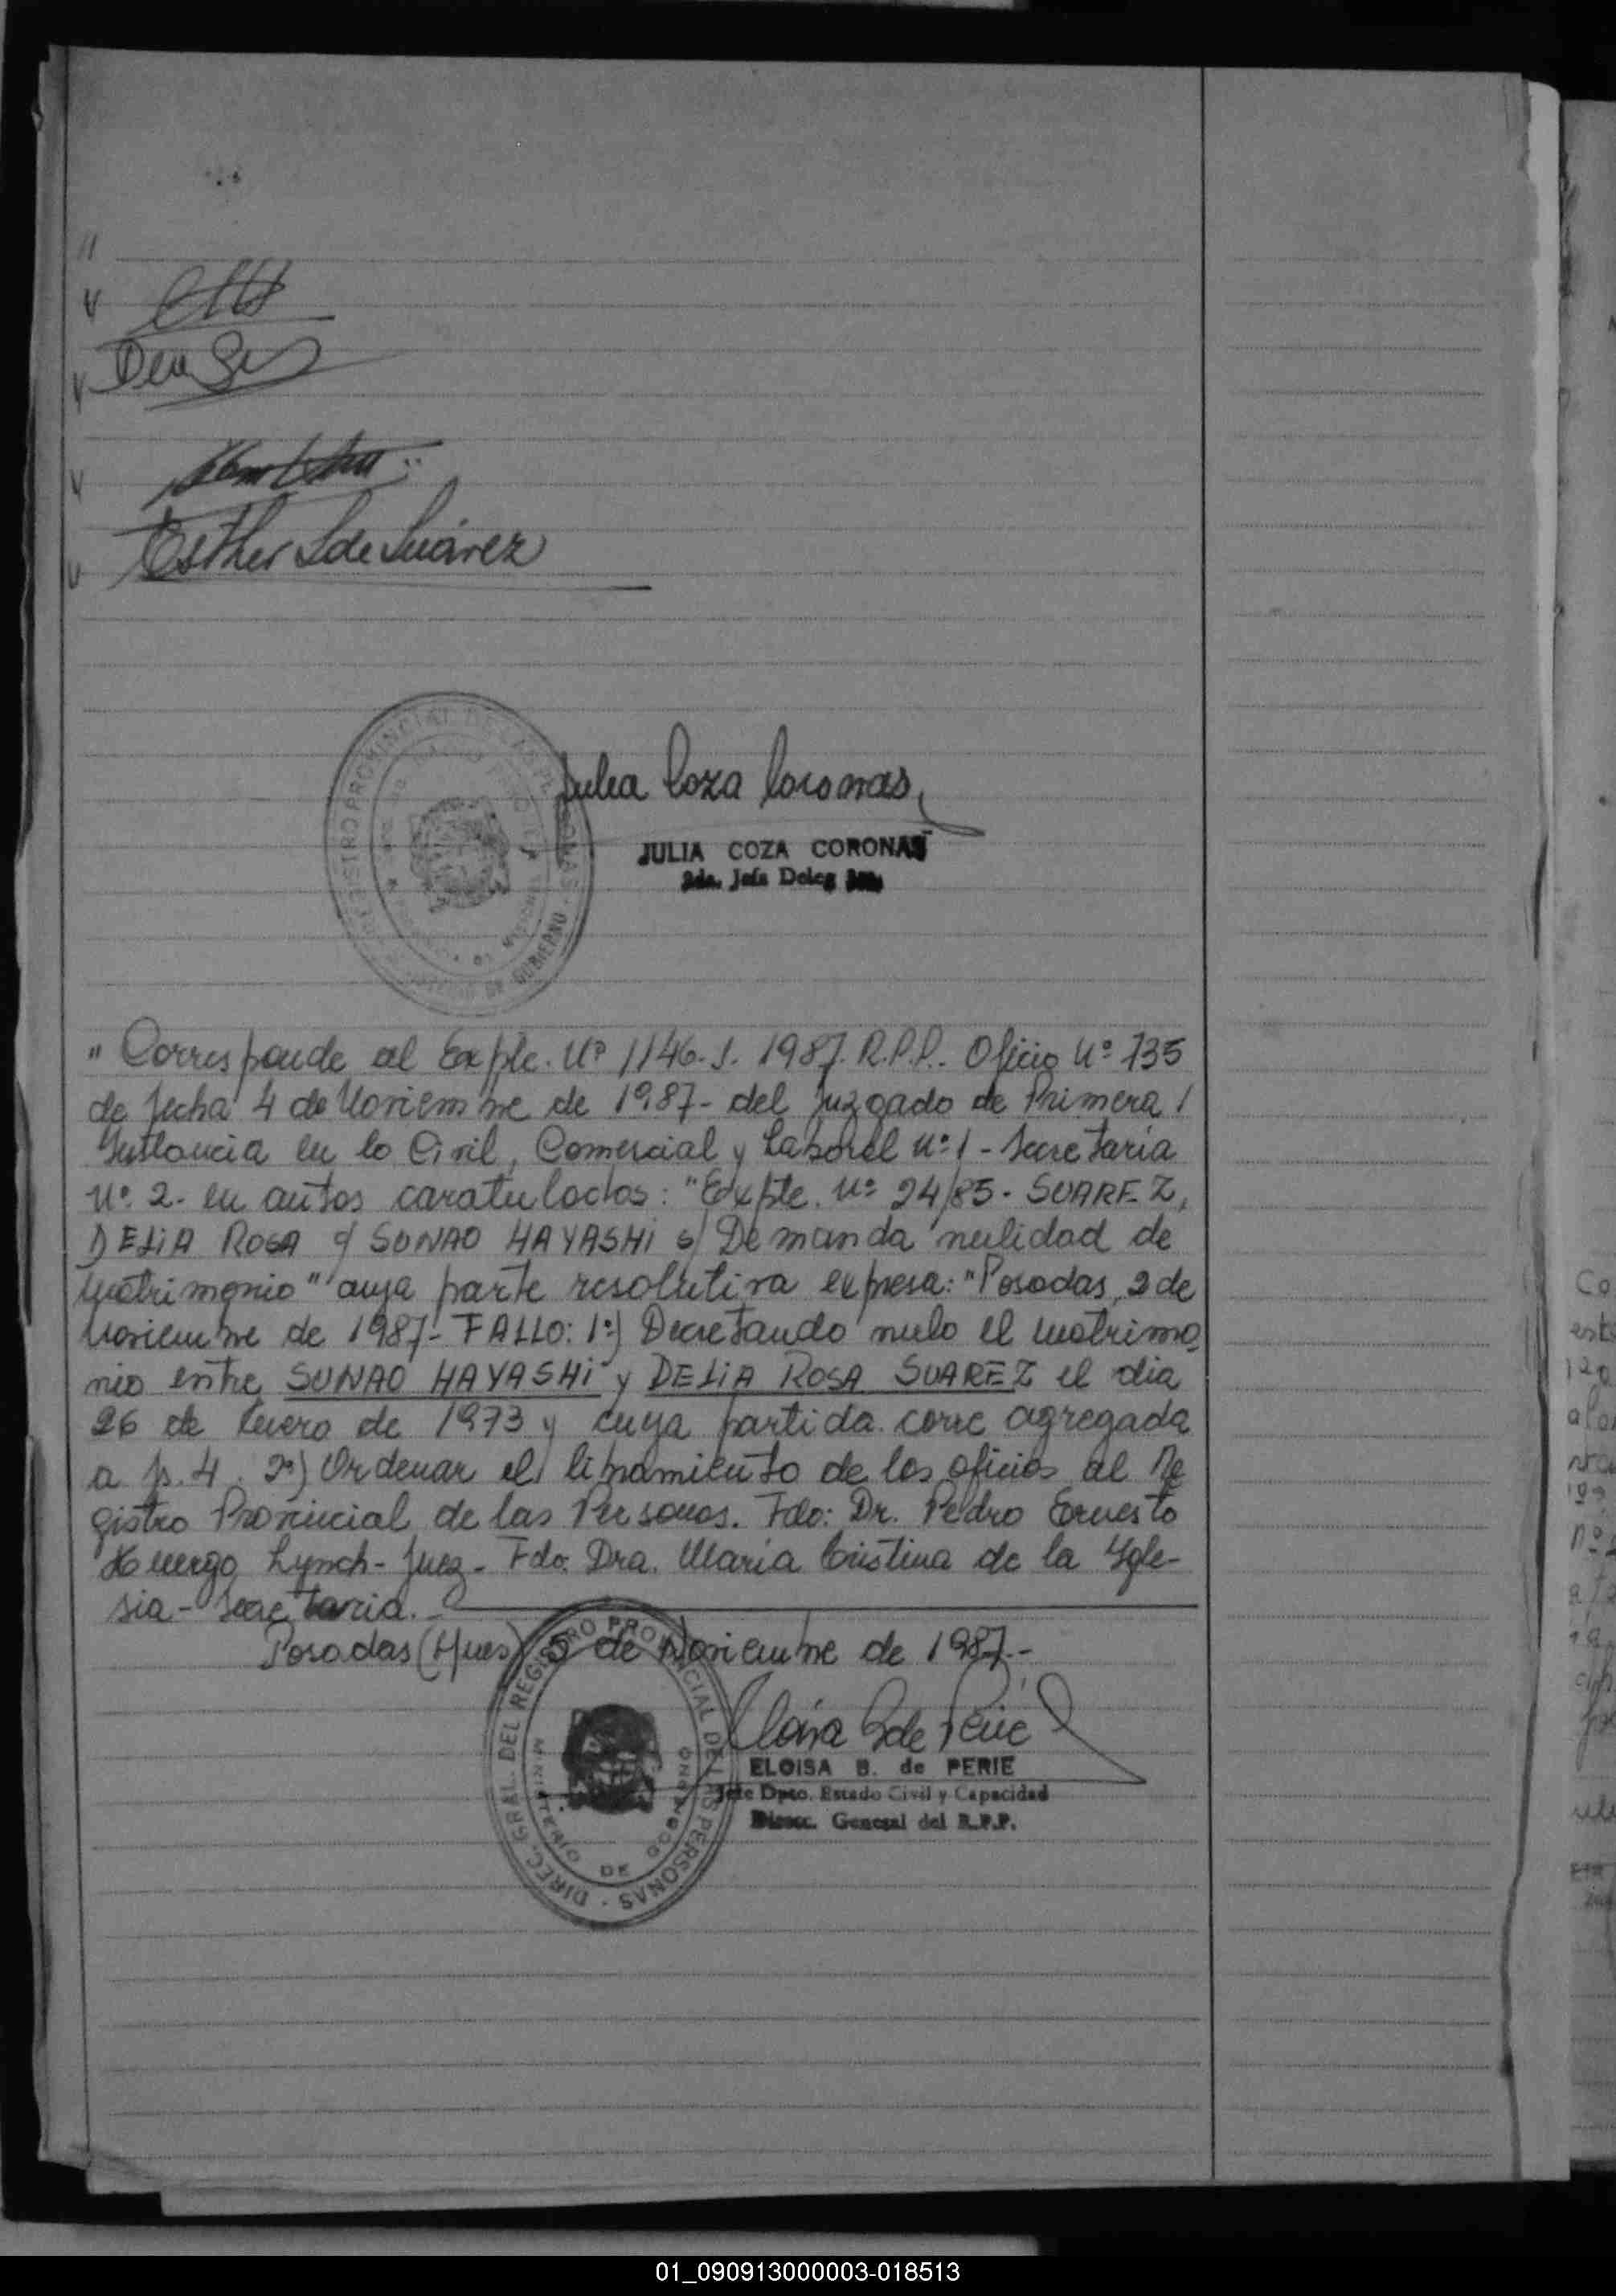 "
Esther S de Suárez
REGISTRO PROVINCIAL DE LAS PERSONAS
DE GOBIERNO
Julia Coza Coronas
JULIA COZA CORONAS
2da. Jefa Deleg
" Corresponde al Expte. Nº 1146-S. 1987. R.P.P.- Oficio Nº 735
de fecha 4 de Noviembre de 1987- del Juzgado de Primera /
Instancia en lo Civil, Comercial y Laboral Nº 1 - Secretaría
Nº 2- en autos caratulados: "Expte. Nº 24/85- SUAREZ,
DELIA ROSA c/ SUNAO HAYASHI s/ Demanda nulidad de
Matrimonio" cuya parte resolutiva expresa: "Posadas, 2 de
Noviembre de 1987- FALLO: 1º) Decretando nulo el matrimo
nio entre SUNAO HAYASHI y DELIA ROSA SUAREZ el día
26 de Enero de 1973 y cuya partida corre agregada
a fs. 4. 2º) Ordenar el libramiento de los oficios al Re
gistro Provincial de las Personas. Fdo: Dr. Pedro Ernesto
Huergo Lynch- Juez- Fdo: Dra. María Cristina de la Igle-
sia- Secretaria.-
Posadas (Mnes) 5 de Noviembre de 1987.-
DIREC. GRAL. DEL REGISTRO PROVINCIAL DE LAS PERSONAS -
MINISTERIO DE GOBIERNO
Eloisa B de Perié
ELOISA B. de PERIE
Jefe Dpto. Estado Civil y Capacidad
Direcc. General del R.P.P.
01_090913000003-018513